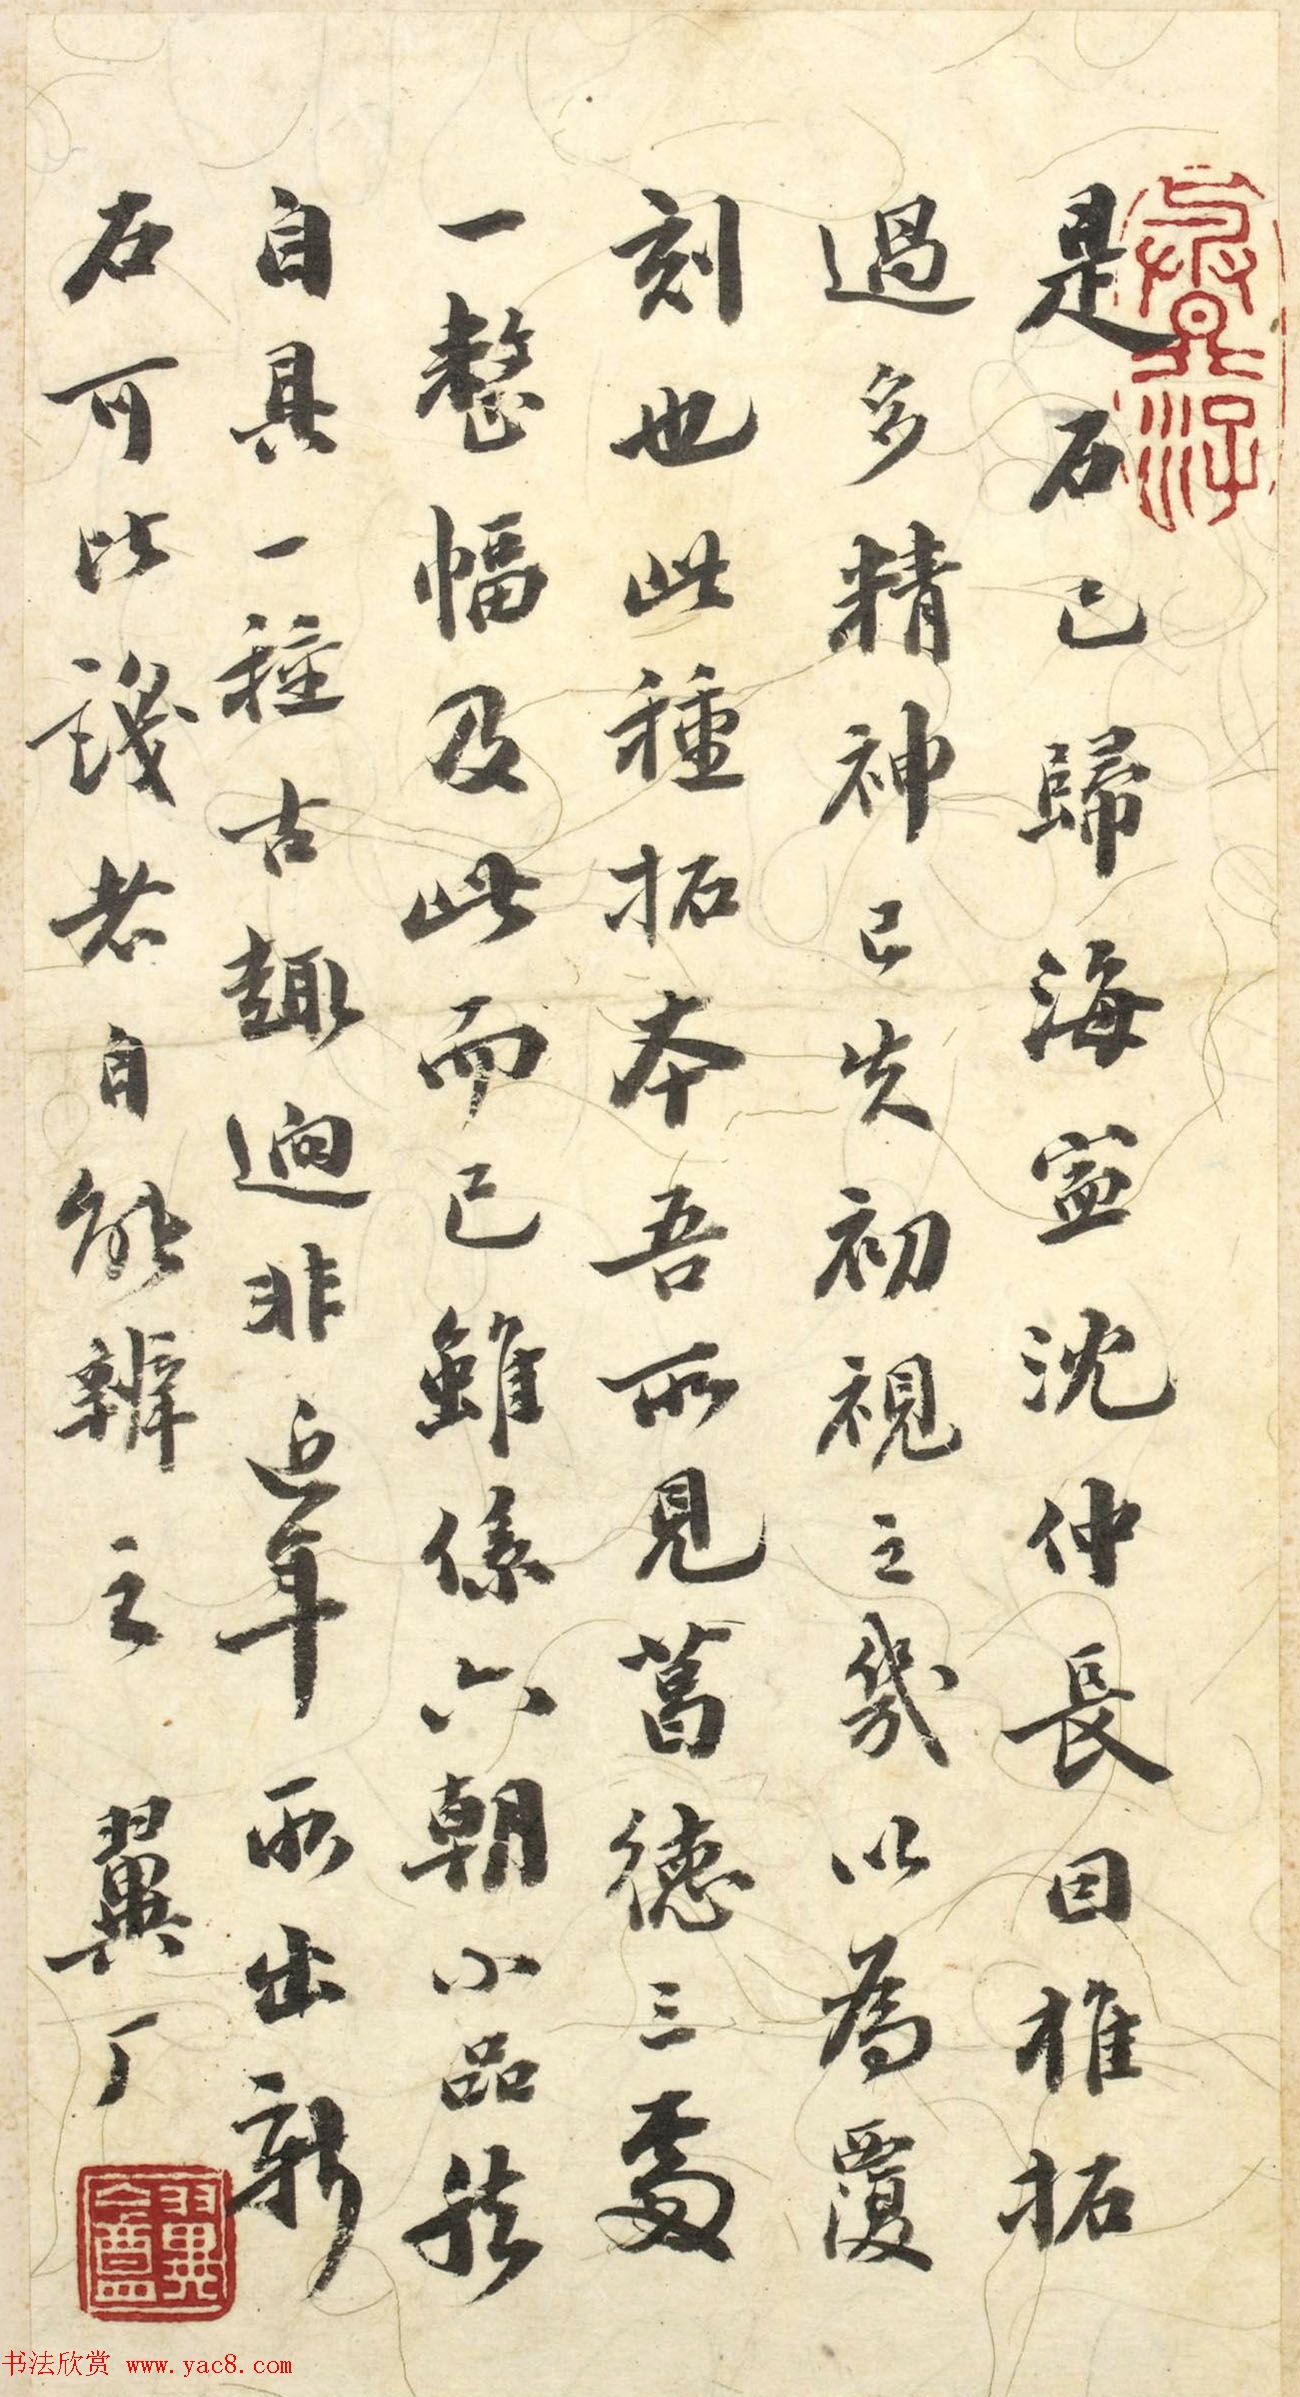 是石已歸海寧沈仲長因椎拓
過多精神已失初視之幾以為覆
刻也此種拓本吾所見莒德三處
一整幅及此而已雖係六朝小品然
自具一種古趣迥非近年所出新
石可比識者自能辨之 翼厂
书法欣赏 www.yac8.com